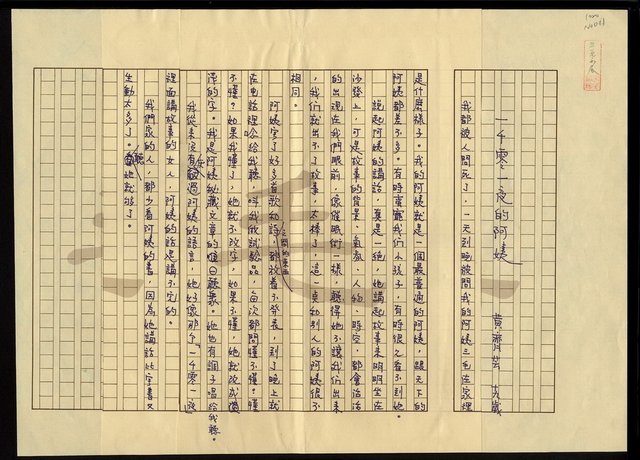 一千零一夜的阿姨
黃齊芸 十九歲
我都被人問死了，一天到晚被問我的阿姨三毛在家裡
是什麼樣子。我的阿姨就是一個最普通的阿姨，跟天下的
阿姨都差不多。有時喜歡我們小孩子，有時很久看不到她。
說起阿姨的講話，真是一絕，她講起故事來明明坐在
沙發上，可是故事的背景、氣氛、人物、時空，都會活活
的出現在我們眼前，像催眠術一樣，聽得她不讓我們出來
，我們就出不了故事，太棒了，這一點和別人的阿姨很不
相同。
阿姨寫了好多首歌和詩，都放着不發表，到了晚上就
在電話裡念給我聽，叫我做試驗品，每次都問懂不懂？懂
不懂？如果我懂了，她就不改字，如果不懂，她就改成
的字。我是阿姨秘藏文章的唯一聽衆。她也有調子唱給我聽。
我從來沒有聽過阿姨的語言，她好像那個「一千零一夜」
裡面講故事的女人，阿姨的話是講不完的。
我們家的人，都少看阿姨的書，因為她講話比寫書又
生動太多了。聽她就夠了。